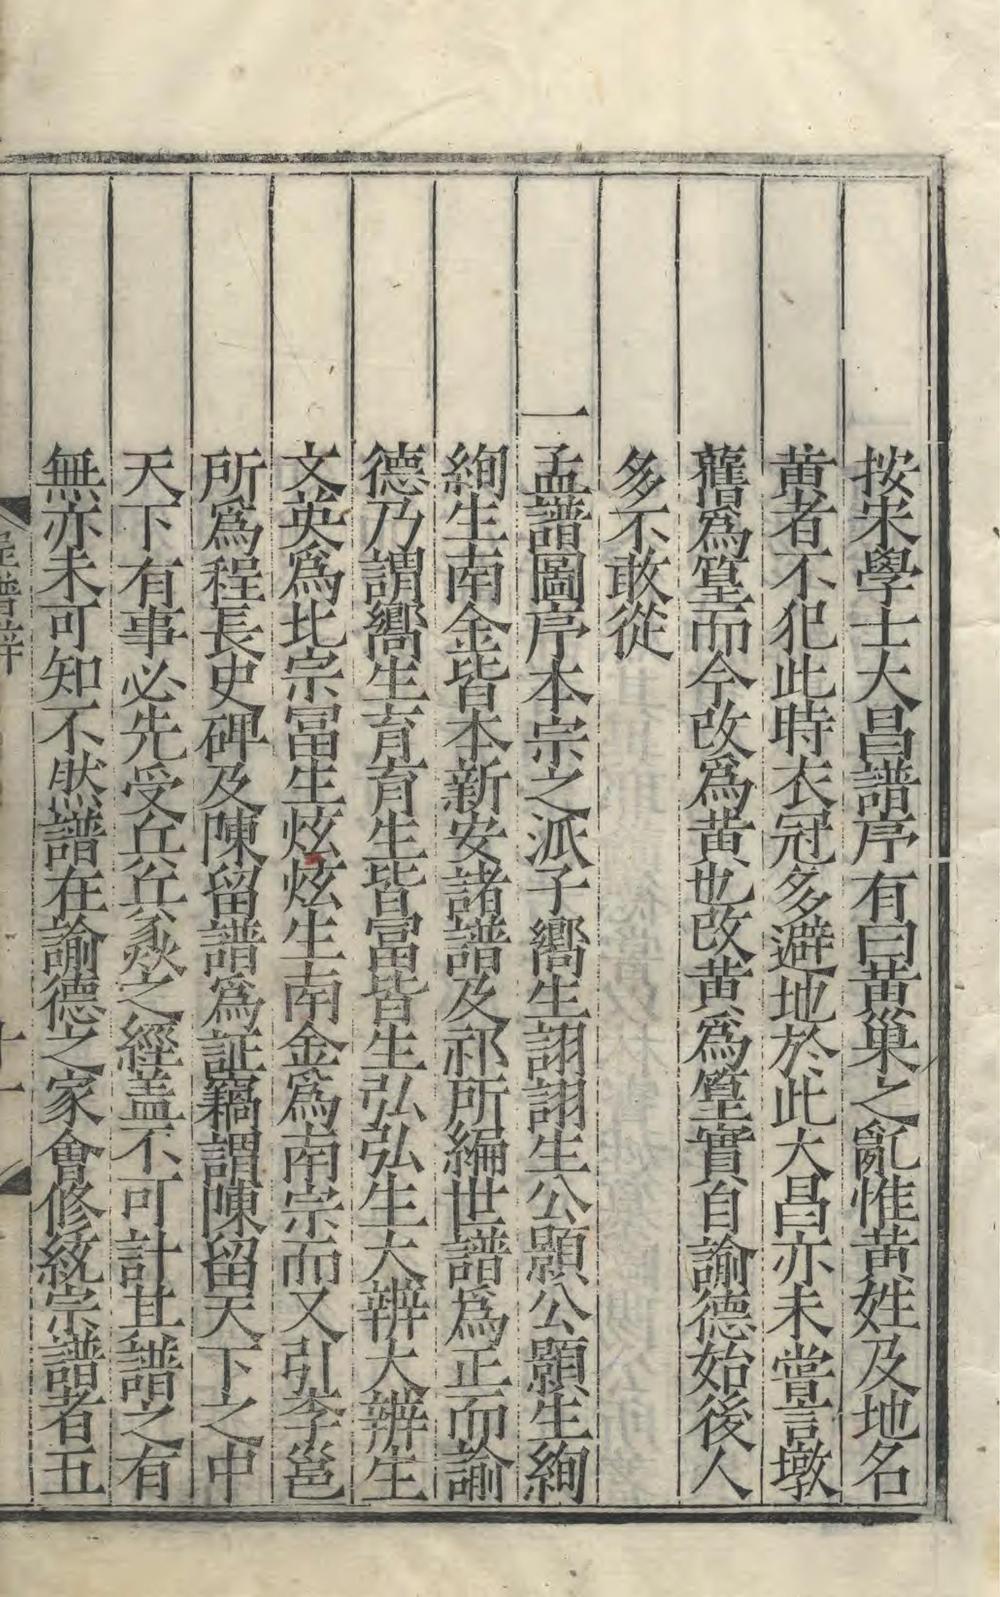 按宋學士大昌譜序有曰黃巢之亂惟黃姓及地名
黃者不犯此時衣冠多避地於此大昌亦未嘗言墩
舊爲篁而今改爲黃也改黃爲篁實自諭德始後人
多不敢從
一孟譜圖序本宗之派子嚮生詡詡生公顯公顯生絢
絢生南金皆本新安諸譜及祁所編世譜爲正而諭
德乃謂嚮生育育生皆當皆生弘弘生大辨大辨生
文英爲北宗當生炫炫生南金爲南宗而又引李邕
所爲程長史碑及陳留譜爲証竊謂陳留天下之中
天下有事必先受兵兵豕燹之經盖不可計其譜之有
無亦未可知不然譜在諭德之家會修統宗譜者五
程譜辨
十一